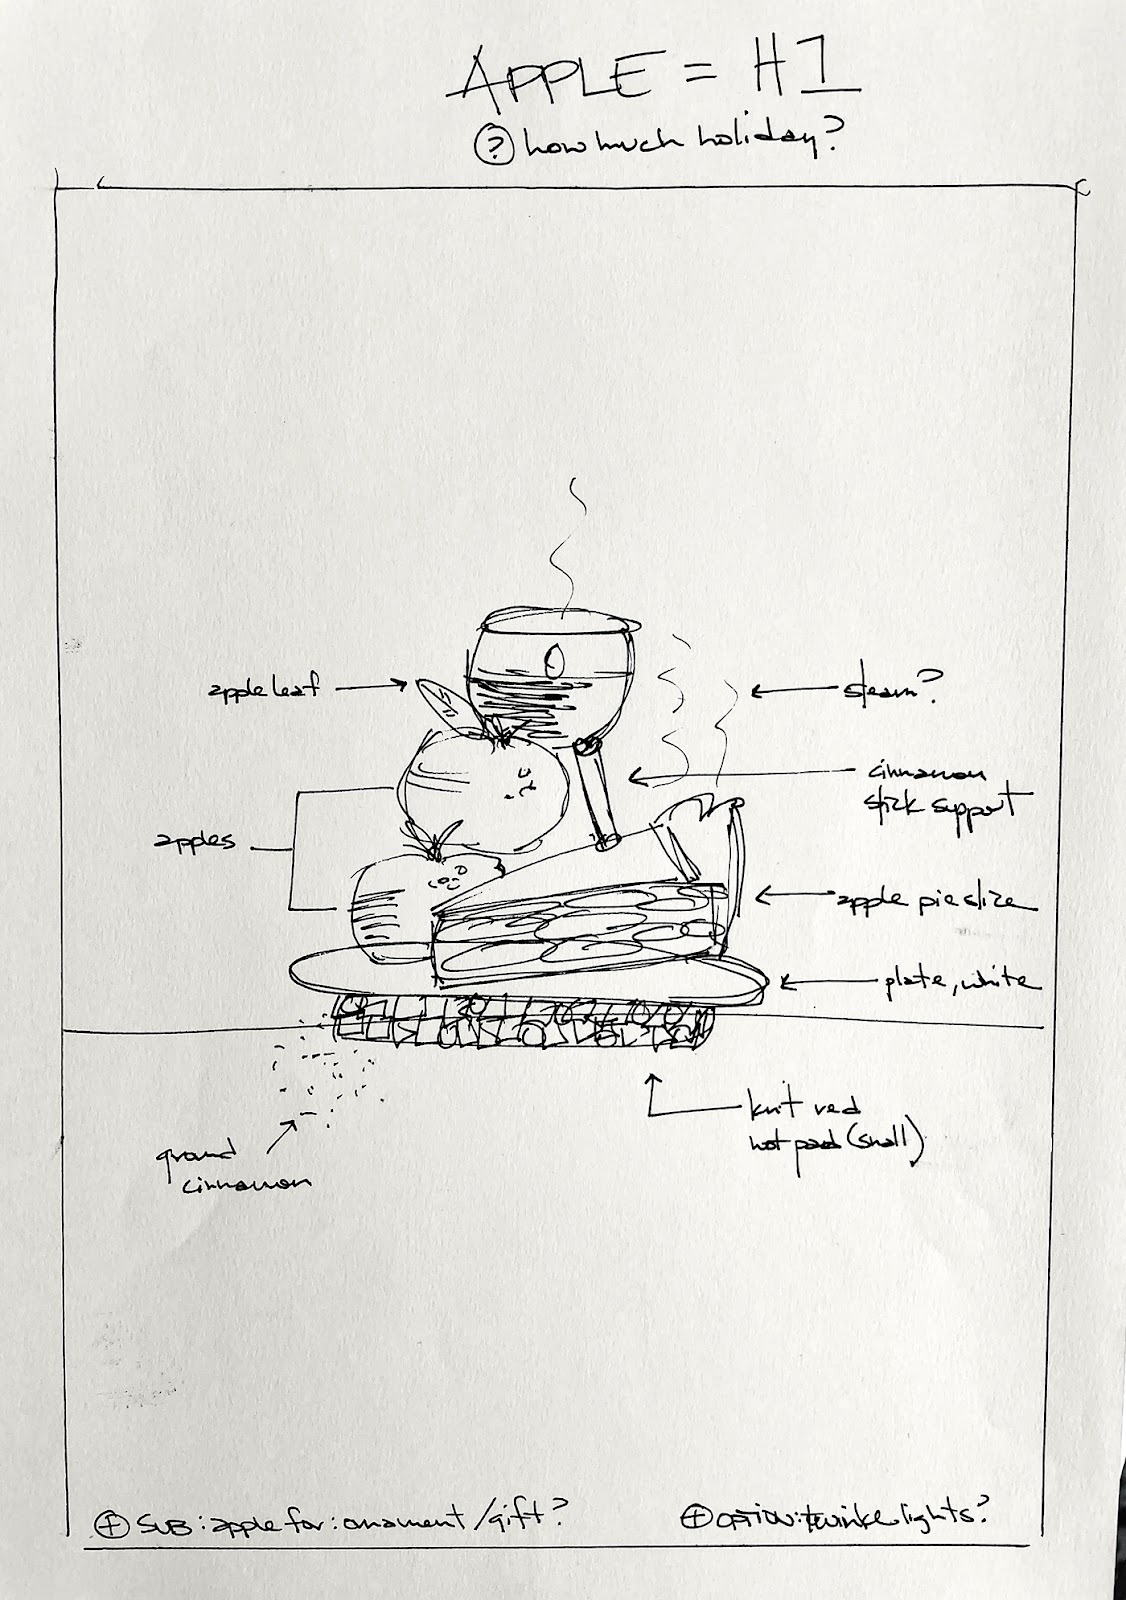 APPLE = H1
? how much holiday?
apple leaf
steam?
cinnamon
stick support
apples
apple pie slice
plate, white
knit red
hot pad (small)
ground
cinnamon
+ SUB: apple for: ornament/gift?
+ OPTION: twinkle lights?